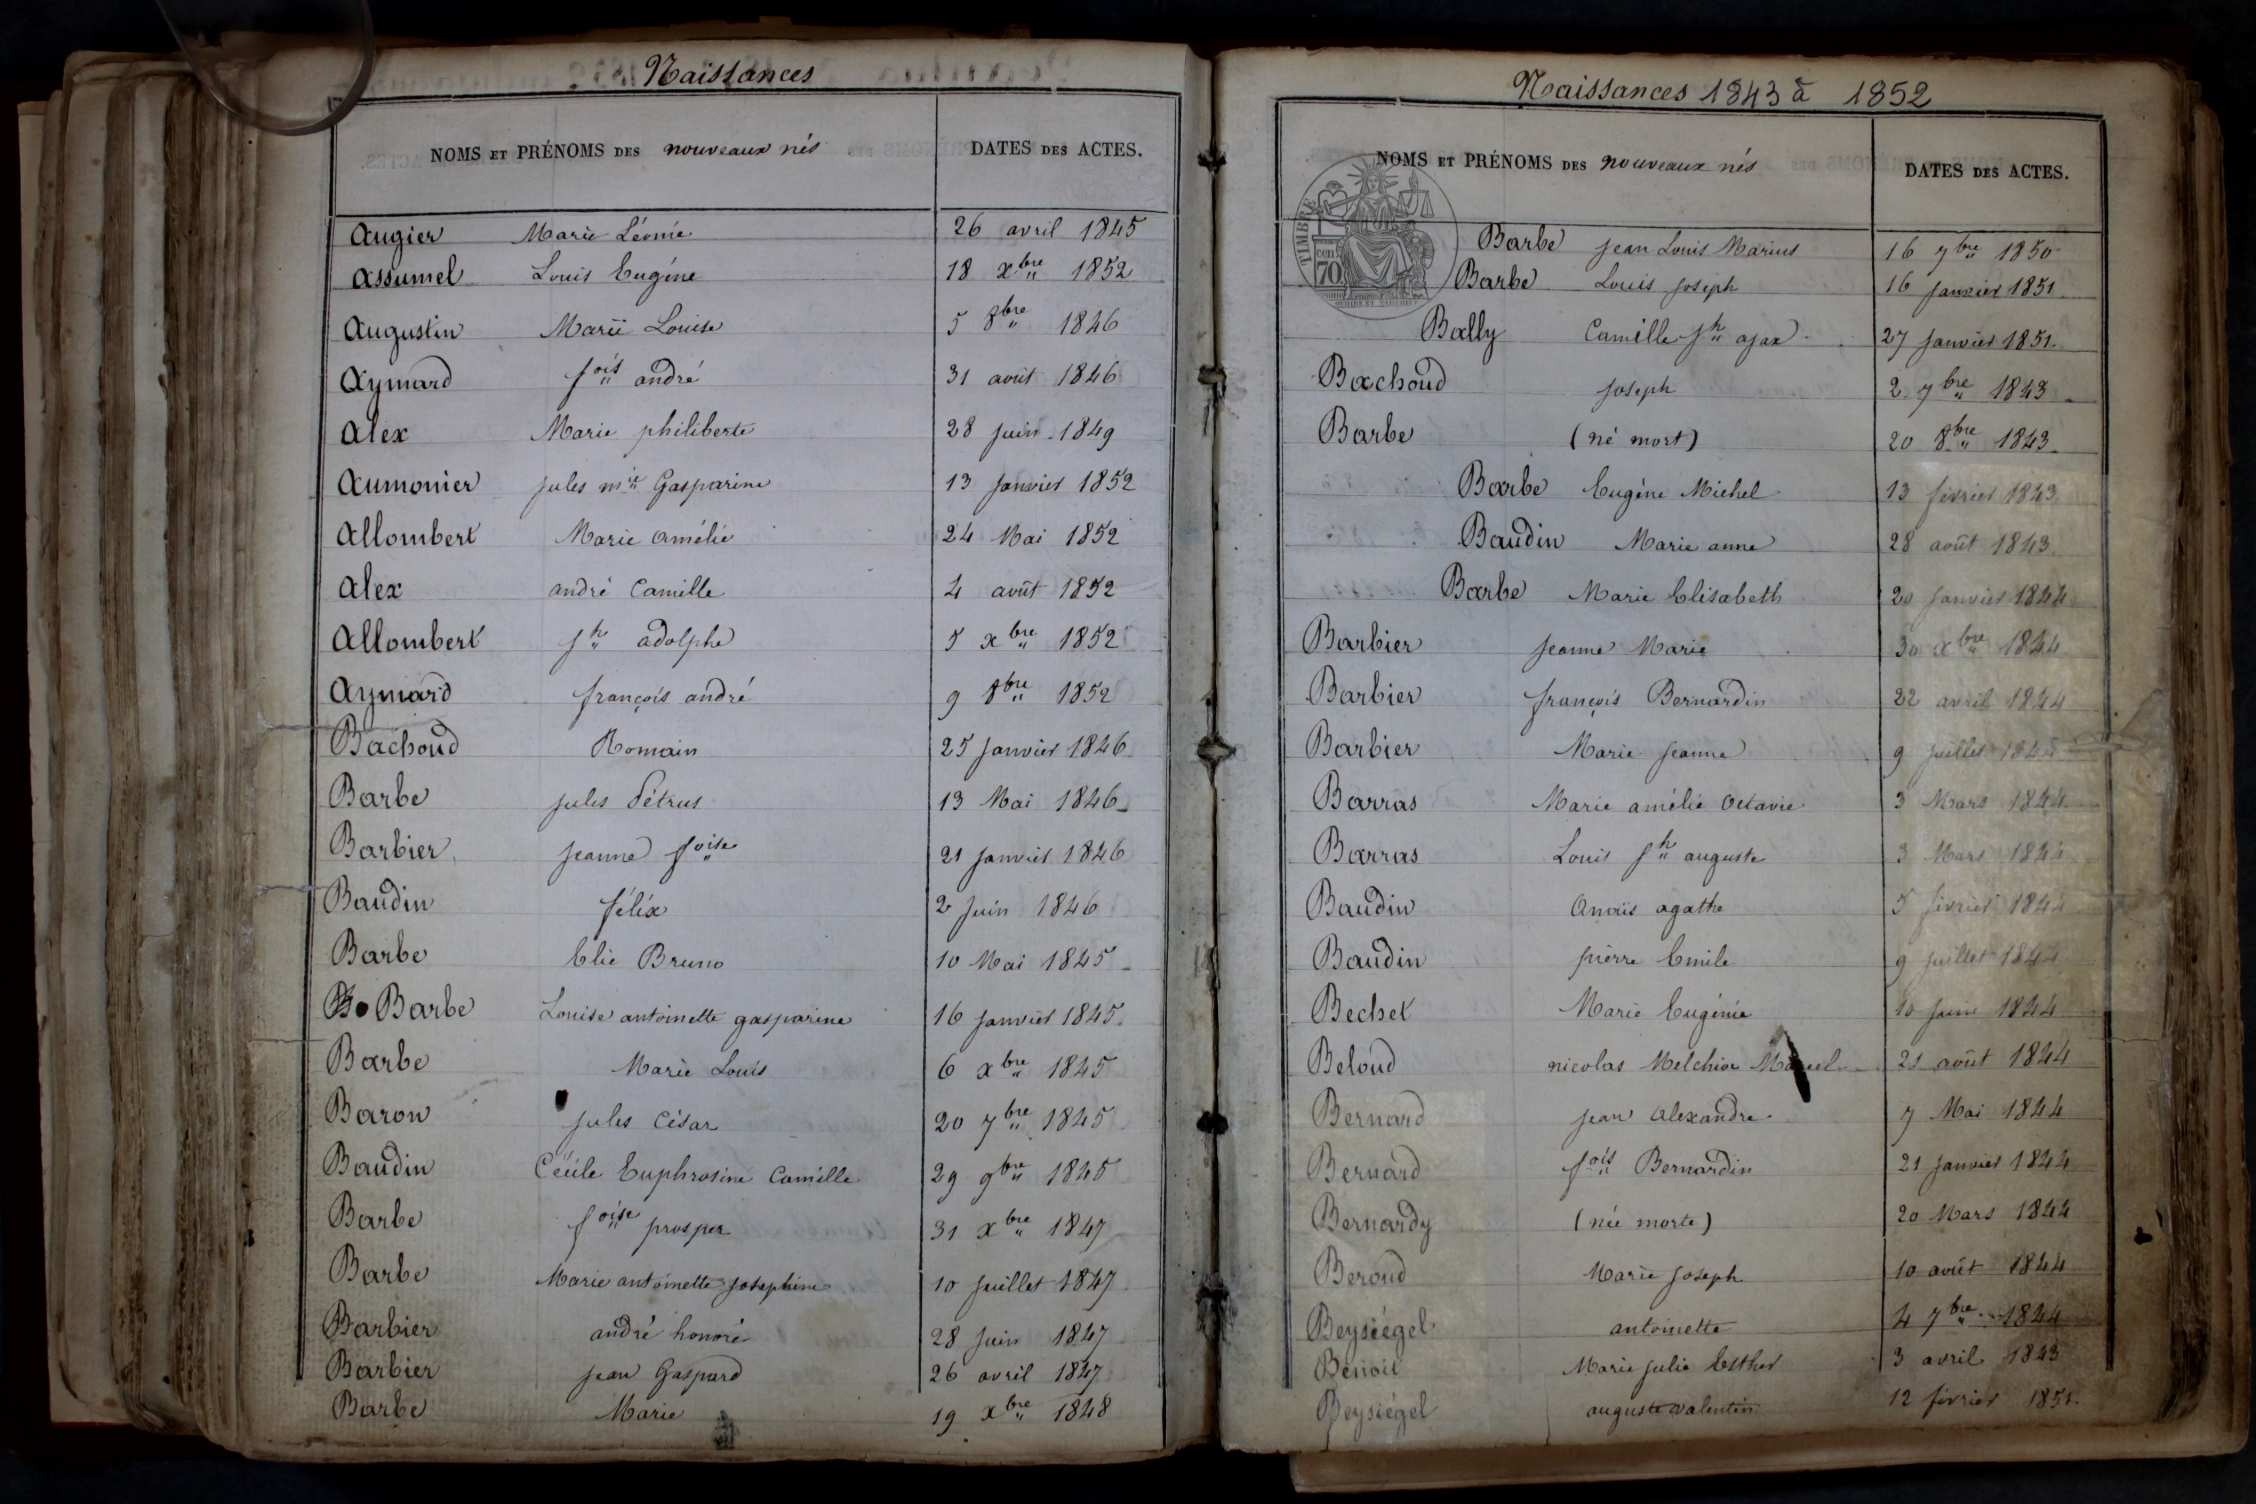 Naissances
NOMS ET PRÉNOMS DES nouveaux nés DATES DES ACTES.
Augier Marie Léonie 26 avril 1845
Assumel Louis Eugène 18 xbre 1852
Augustin Marie Louise 5 8bre 1846
Aymard fois andré 31 août 1846
Alex Marie philiberte 28 juin 1849
Aumonier jules mie Gasparine 13 janvier 1852
Allombert Marie amélie 24 Mai 1852
Alex andré Camille 4 août 1852
Allombert jh adolphe 5 xbre 1852
Aymard françois andré 9 8bre 1852
Bachoud Romain 25 janvier 1846
Barbe jules Pétrus 13 Mai 1846
Barbier jeanne foise 21 janvier 1846
Baudin félix 2 juin 1846
Barbe Elie Bruno 10 Mai 1845
Barbe Louise antoinette gasparine 16 janvier 1845
Barbe Marie Louis 6 xbre 1845
Baron jules César 20 7bre 1845
Baudin Cécile Euphrosine Camille 29 9bre 1845
Barbe foise prosper 31 xbre 1847
Barbe Marie antoinette josephine 10 juillet 1847
Barbier andré honoré 28 juin 1847
Barbier jean Gaspard 26 avril 1847
Barbe Marie 19 xbre 1848
Naissances 1843 à 1852
NOMS ET PRÉNOMS DES nouveaux nés DATES DES ACTES.
TIMBRE
70
Barbe jean Louis Marius 16 7bre 1850
Barbe Louis joseph 16 janvier 1851
Bally Camille jh ajax 27 janvier 1851
Bachoud joseph 2 7bre 1843
Barbe (né mort) 20 8bre 1843
Barbe Eugène Michel 13 février 1843
Baudin Marie anne 28 août 1843
Barbe Marie Elisabeth 20 janvier 1844
Barbier jeanne Marie 30 xbre 1844
Barbier françois Bernardin 22 avril 1844
Barbier Marie jeanne 9 juillet 1844
Barras Marie amélie Octavie 3 Mars 1844
Barras Louis jh auguste 3 Mars 1844
Baudin Anaïs agathe 5 février 1844
Baudin pierre Emile 9 juillet 1844
Bechet Marie Eugénie 10 juin 1844
Beloud nicolas Melchior 21 août 1844
Bernard jean Alexandre 7 Mai 1844
Bernard fois Bernardin 21 janvier 1844
Bernardy (née morte) 20 Mars 1844
Beroud Marie joseph 10 août 1844
Beysiégel antoinette 4 7bre 1844
Benoit Marie julie Esther 3 avril 1843
Beysiégel auguste valentin 12 février 1851